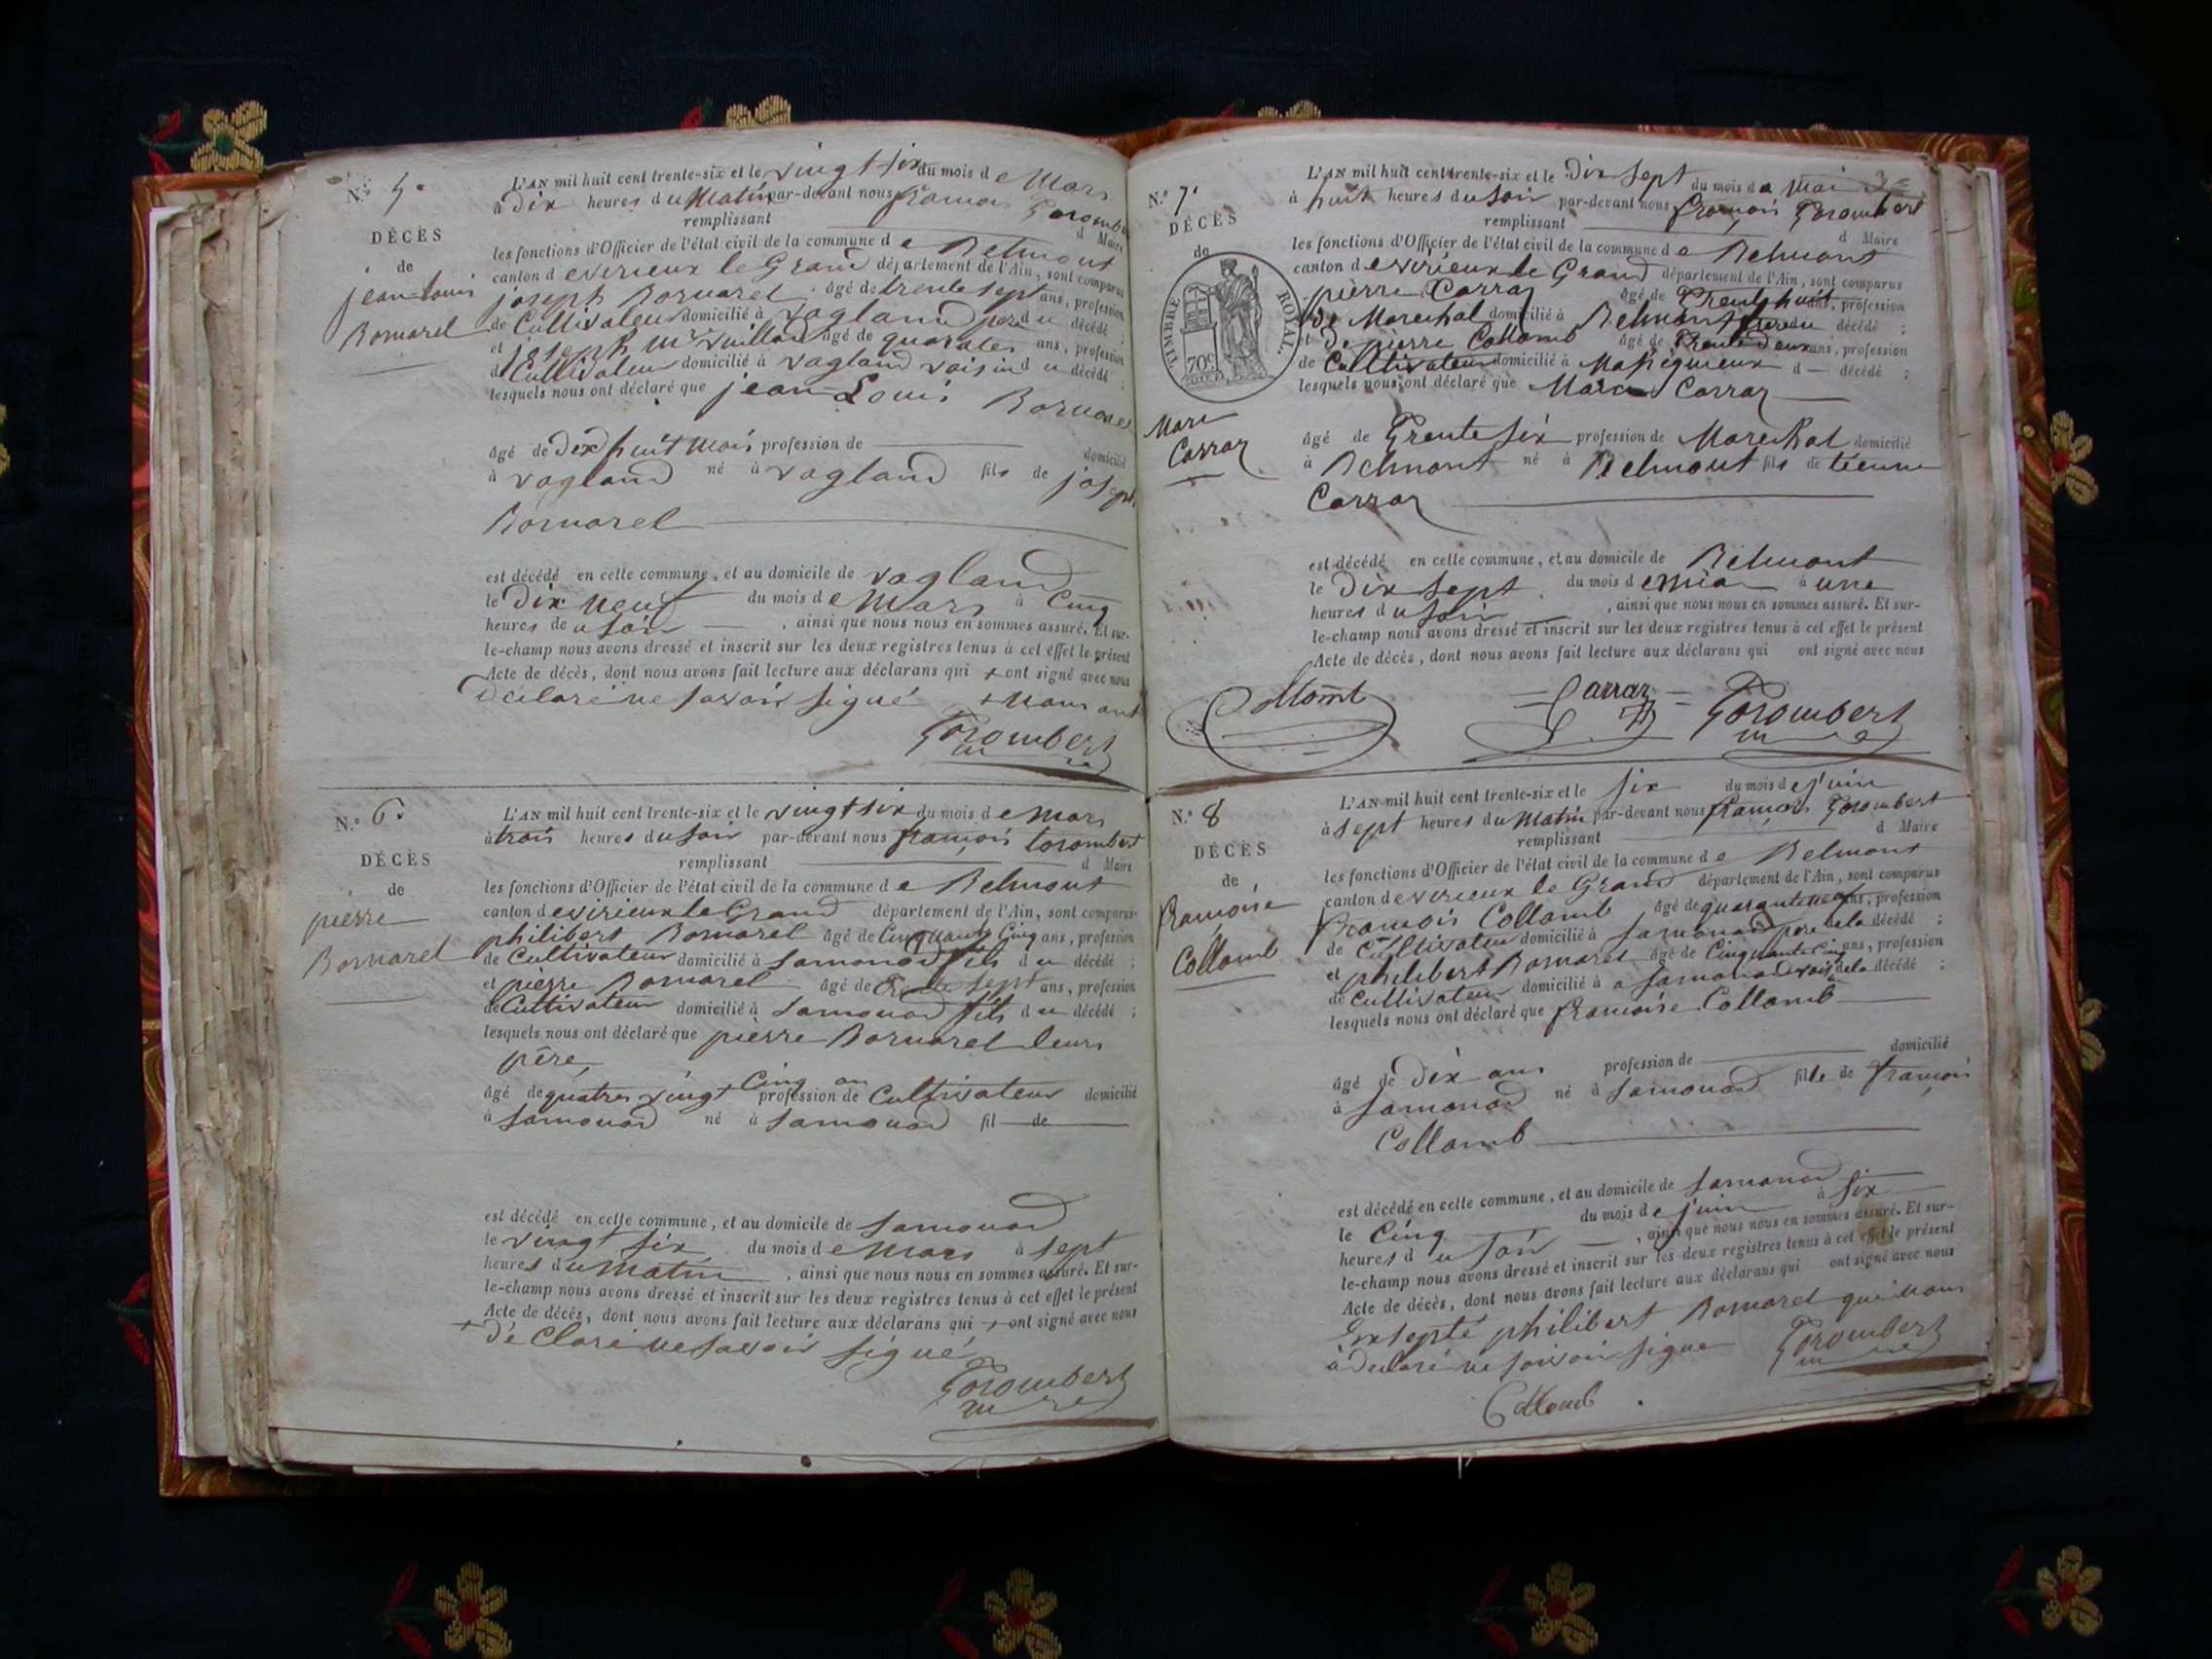 N.º 5.
DÉCÈS
de
jean-Louis
Bornarel
L'AN mil huit cent trente-six et le vingt six du mois de Mars
à Dix heures du Matin par-devant nous françois Gorombert
remplissant d Maire
les fonctions d'Officier de l'état civil de la commune de Belmont
canton de virieux le Grand département de l'Ain, sont comparus
joseph Bornarel âgé de trente sept ans, profession
de Cultivateur domicilié à vogland pere du décédé ;
et joseph Mce vuillod âgé de quarate ans, profession
d Cultivateur domicilié à vogland voisin du décédé ;
lesquels nous ont déclaré que jean-Louis Bornarel
âgé de Dix huit Mois profession de domicilié
à vogland né à vogland fils de joseph
Bornarel
est décédé en cette commune, et au domicile de vogland
le Dix neuf du mois de Mars à Cinq
heures de u soir , ainsi que nous nous en sommes assuré. Et sur-
le-champ nous avons dressé et inscrit sur les deux registres tenus à cet effet le présent
Acte de décès, dont nous avons fait lecture aux déclarans qui + ont signé avec nous
Déclaré ne savoir signé + nous ont
Gorombert
N.º 6.
DÉCÈS
de
pierre
Bornarel
L'AN mil huit cent trente-six et le vingt six du mois de Mars
à trois heures du soir par-devant nous françois Gorombert
remplissant d Maire
les fonctions d'Officier de l'état civil de la commune de Belmont
canton de virieux le Grand département de l'Ain, sont comparus
philibert Bornarel âgé de Cinquante Cinq ans, profession
de Cultivateur domicilié à samonod fils du décédé ;
et pierre Bornarel âgé de Trente sept ans, profession
de Cultivateur domicilié à samonod fils du décédé ;
lesquels nous ont déclaré que pierre Bornarel leurs
père,
âgé de quatre vingt Cinq an profession de Cultivateur domicilié
à samonod né à samonod fil de
est décédé en cette commune, et au domicile de samonod
le vingt six du mois de Mars à sept
heures du Matin , ainsi que nous nous en sommes assuré. Et sur-
le-champ nous avons dressé et inscrit sur les deux registres tenus à cet effet le présent
Acte de décès, dont nous avons fait lecture aux déclarans qui + ont signé avec nous
+ déClaré ne savoir signé
Gorombert
N.º 7.
DÉCÈS
de
TIMBRE ROYAL.
70c
Marc
Carraz
L'AN mil huit cent trente-six et le Dix sept du mois de mai
à huit heures du soir par-devant nous françois Gorombert
remplissant d Maire
les fonctions d'Officier de l'état civil de la commune de Belmont
canton de virieux le Grand département de l'Ain, sont comparus
pierre Carraz âgé de Trente huit ans, profession
de Marechal domicilié à Belmont frere du décédé ;
et de pierre Collomb âgé de Trente Deux ans, profession
de Cultivateur domicilié à Massignieux d décédé ;
lesquels nous ont déclaré que Marc Carraz
âgé de Trente six profession de Marechal domicilié
à Belmont né à Belmont fils de téenne
Carraz
est décédé en cette commune, et au domicile de Belmont
le Dix sept du mois de mia à une
heures du soir , ainsi que nous nous en sommes assuré. Et sur-
le-champ nous avons dressé et inscrit sur les deux registres tenus à cet effet le présent
Acte de décès, dont nous avons fait lecture aux déclarans qui ont signé avec nous
Collomb Carraz Gorombert
N.º 8
DÉCÈS
de
françoise
Collomb
L'AN mil huit cent trente-six et le six du mois de juin
à sept heures du Matin par-devant nous françois Gorombert
remplissant d Maire
les fonctions d'Officier de l'état civil de la commune de Belmont
canton de virieux le Grand département de l'Ain, sont comparus
françois Collomb âgé de quarante neuf ans, profession
de Cultivateur domicilié à samonod pere de la décédé ;
et philibert Bornarel âgé de Cinquante Cinq ans, profession
de Cultivateur domicilié à samonod voisin de la décédé ;
lesquels nous ont déclaré que françoise Collomb
âgé de dix ans profession de domicilié
à samonod né à samonod fille de françois
Collomb
est décédé en cette commune, et au domicile de samonod
le Cinq du mois de juin à six
heures du soir , ainsi que nous nous en sommes assuré. Et sur-
le-champ nous avons dressé et inscrit sur les deux registres tenus à cet effet le présent
Acte de décès, dont nous avons fait lecture aux déclarans qui ont signé avec nous
Exsepté philibert Bornarel qui nous
à déclaré ne savoir signe Gorombert
Collomb